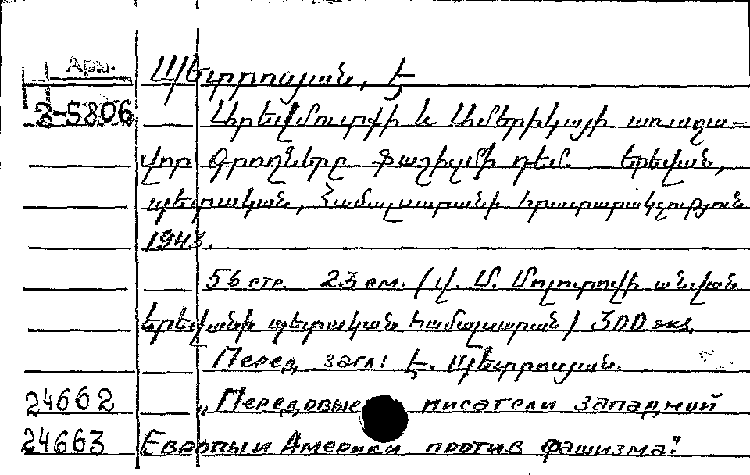 Арм. Պետրոսյան, Է
2-5806 Արեվմուտքի և Ամերիկայի առաջա-
վոր գրողները Ֆաշիզմի դեմ. Երեվան,
պետական, Համալսարանի հրատարակչություն
1943.
56 стр. 23 см. (Վ. Մ. Մոլոտովի անվան
Երեվանի պետական համալսարան) 300 экз.
Перед загл: Է. Պետրոսյան.
24662 „Передовые писатели западной
24663 Европы и Америки против фашизма“.